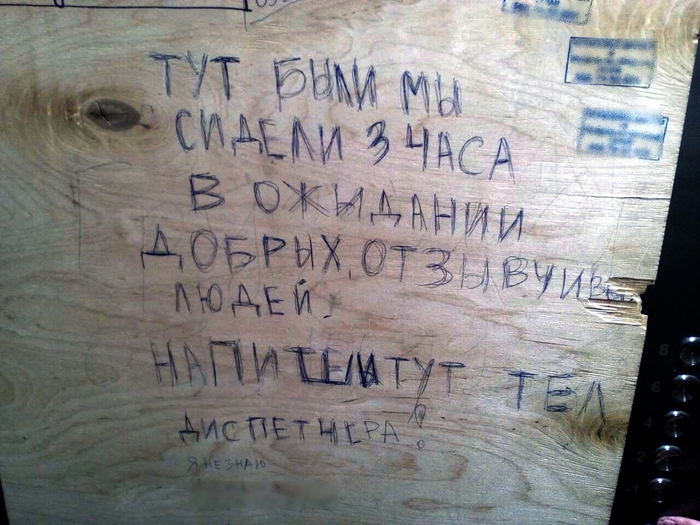 ТУТ БЫЛИ МЫ
СИДЕЛИ 3 ЧАСА
В ОЖИДАНИИ
ДОБРЫХ, ОТЗЫВЧИВЫ
ЛЮДЕЙ.
ТУТ ТЕЛ
ДИСПЕТЧЕРА!
Я НЕ ЗНАЮ
8
6
4
2